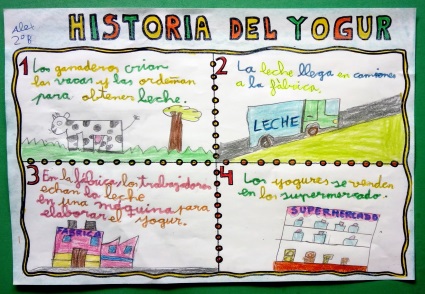 Alex
2ºB
HISTORIA DEL YOGUR
1 Los ganaderos crian
las vacas y las ordeñan
para obtener leche.
2 La leche llega en camiones
a la fábrica.
LECHE
3 En la fábrica, los trabajadores
echan la leche
en una máquina para
elaborar el yogur.
FABRICA
4 Los yogures se venden
en los supermercado.
SUPERMERCADO